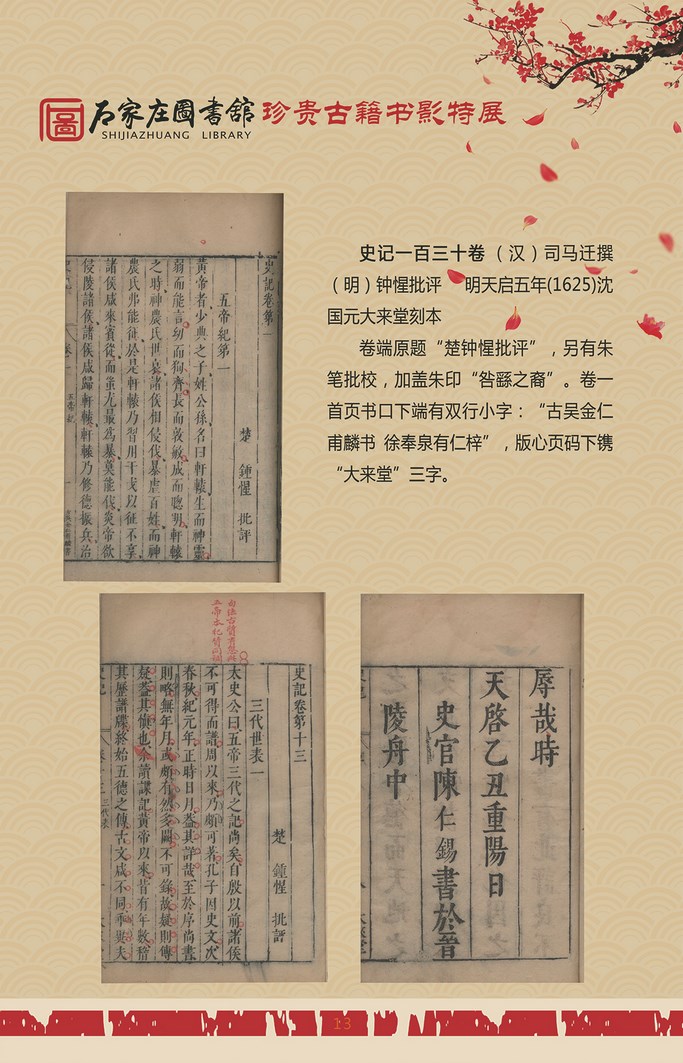 石家庄圖書館 珍贵古籍书影特展
SHIJIAZHUANG LIBRARY
史记一百三十卷（汉）司马迁撰
（明）钟惺批评 明天启五年(1625)沈
国元大来堂刻本
卷端原题“楚钟惺批评”，另有朱
笔批校，加盖朱印“咎繇之裔”。卷一
首页书口下端有双行小字：“古吴金仁
甫麟书 徐奉泉有仁梓”，版心页码下镌
“大来堂”三字。
史記卷第一
楚 鍾惺 批評
五帝紀第一
黃帝者少典之子姓公孫名曰軒轅生而神靈
弱而能言幼而徇齊長而敦敏成而聰明軒轅
之時神農氏世衰諸侯相侵伐暴虐百姓而神
農氏弗能征於是軒轅乃習用干戈以征不享
諸侯咸來賓從而蚩尤最為暴莫能伐炎帝欲
侵陵諸侯諸侯咸歸軒轅軒轅乃修德振兵治
史記卷第十三
楚 鍾惺 批評
三代世表一
太史公曰五帝三代之記尚矣自殷以前諸侯
不可得而譜周以來乃頗可著孔子因史文次
春秋紀元年正時日月蓋其詳哉至於序尚書
則略無年月或頗有然多闕不可錄故疑則傳
疑蓋其慎也余讀諜記黃帝以來皆有年數稽
其歷譜諜終始五德之傳古文咸不同乖異夫
辱哉時
天啓乙丑重陽日
史官陳仁錫書於晉
陵舟中
13